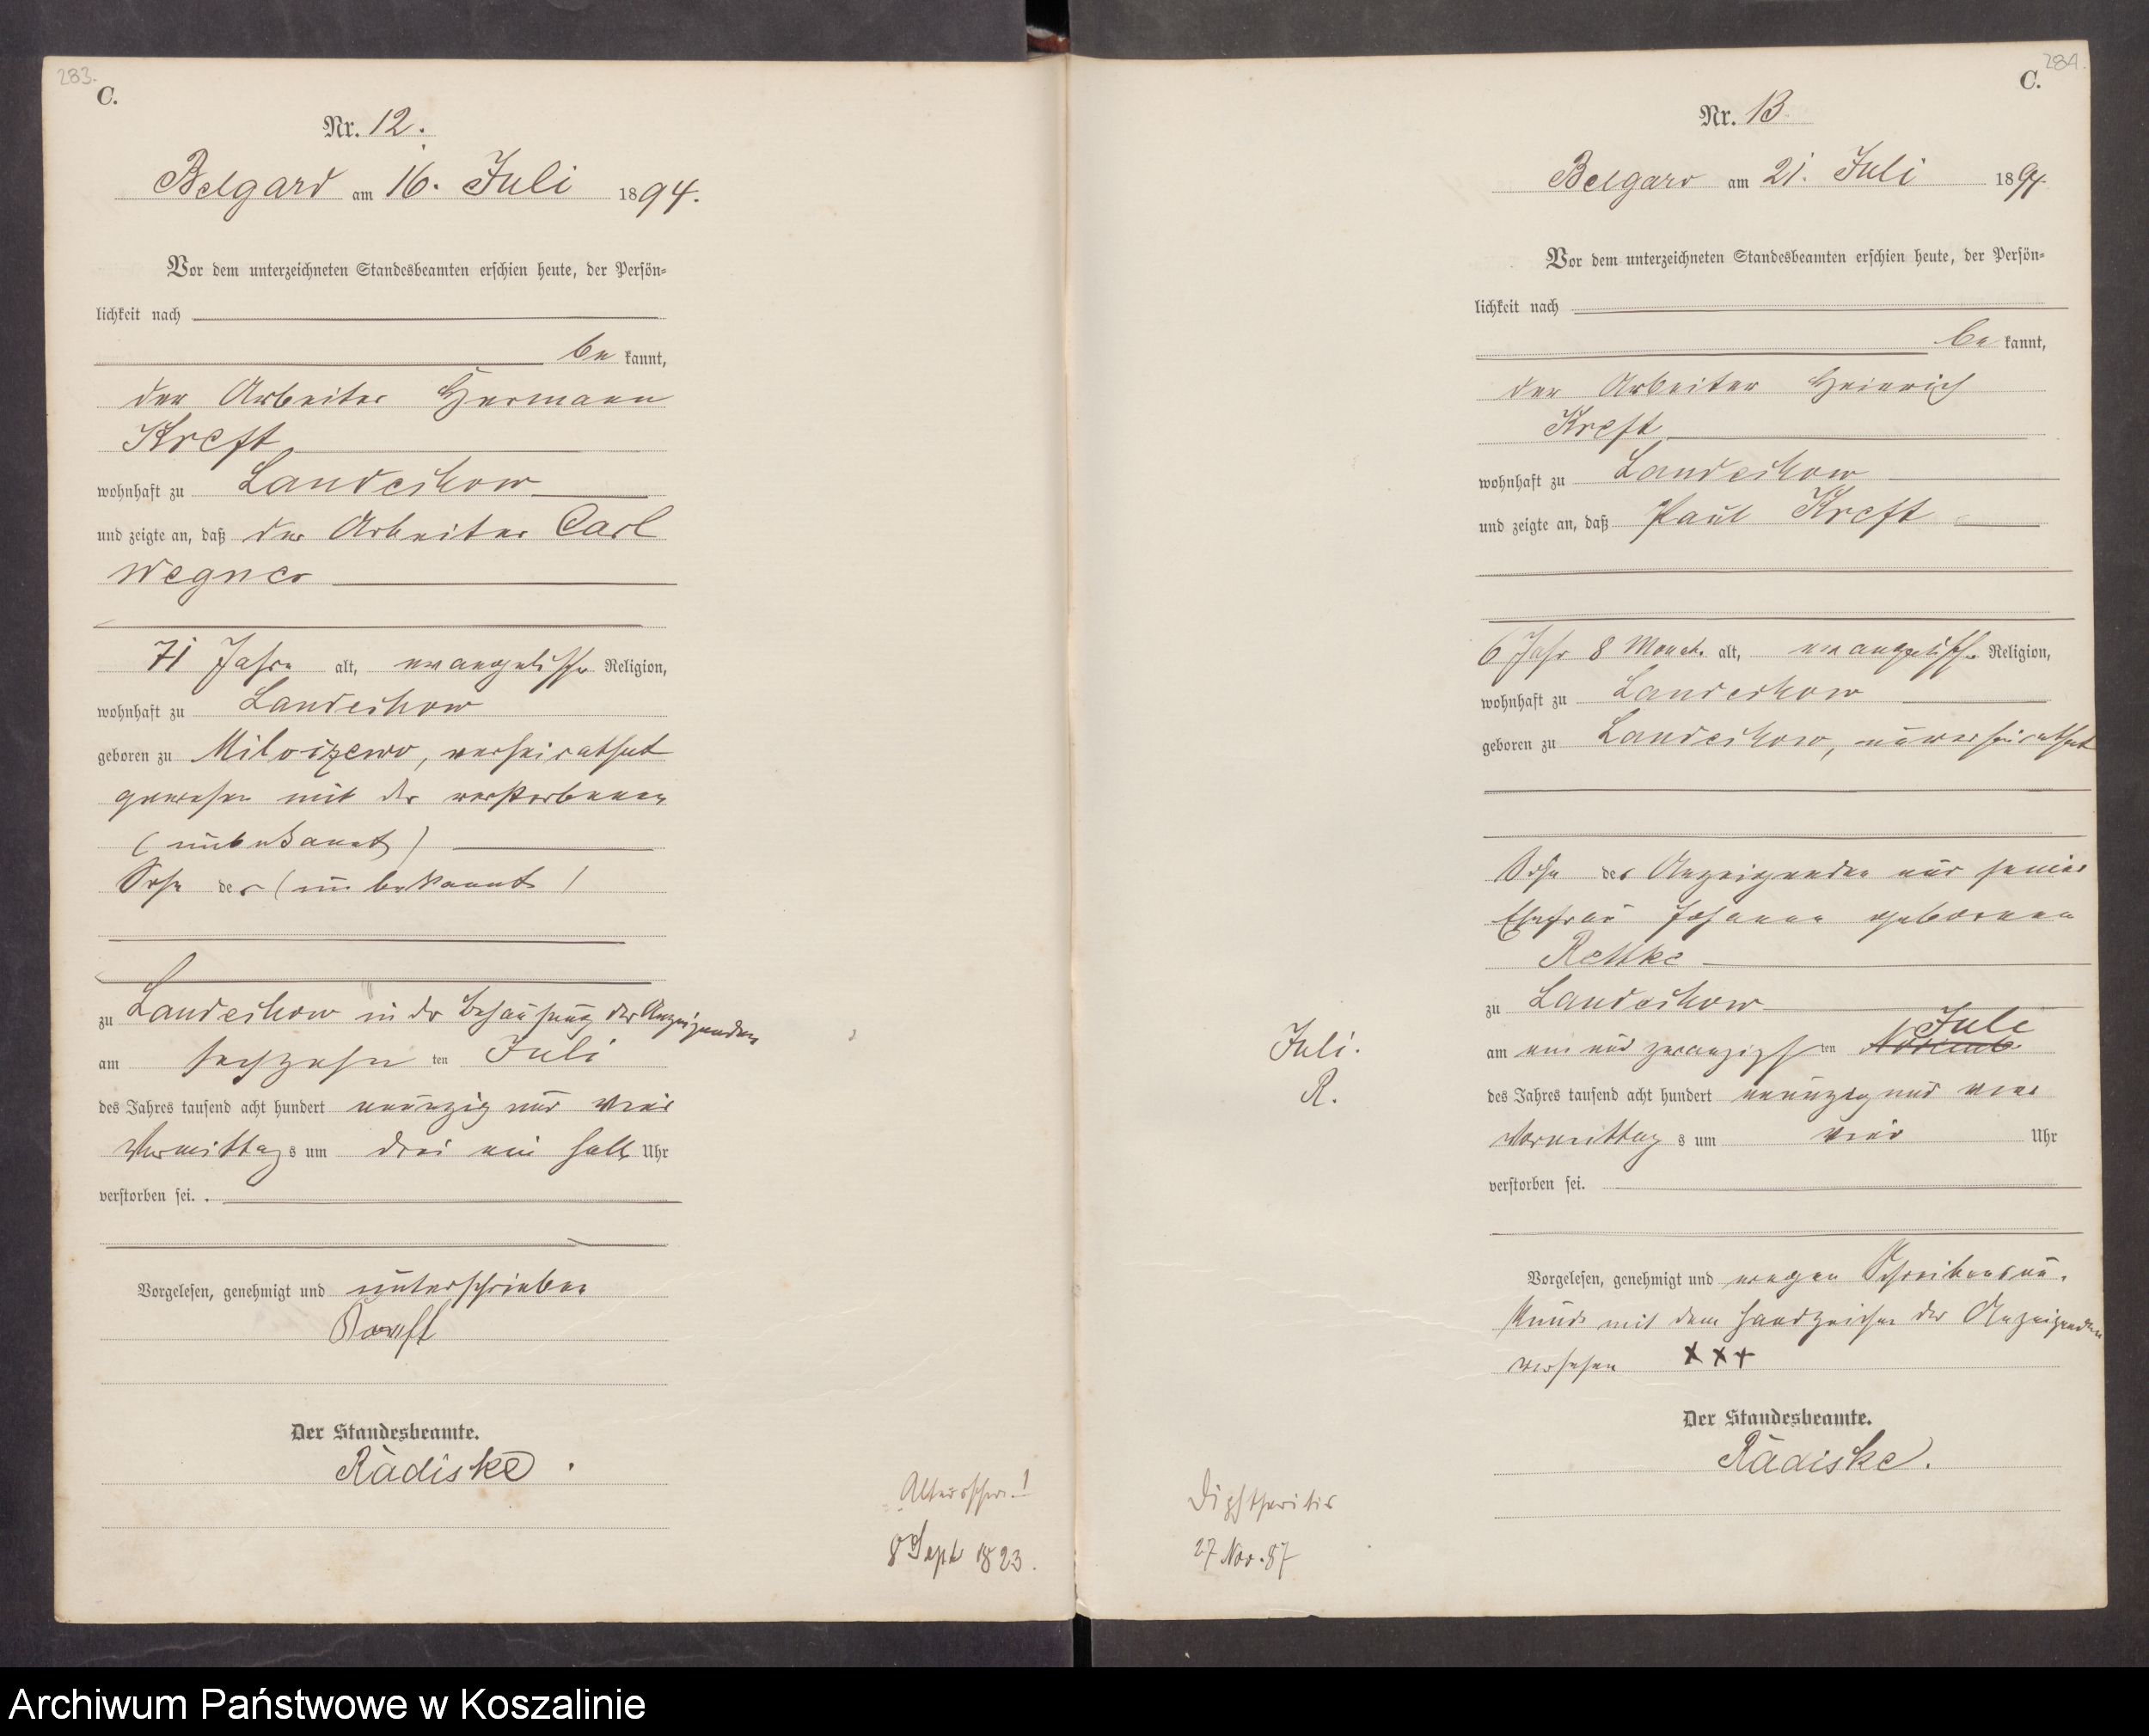 283.
C.
Nr. 12.
Belgard am 16. Juli 1894.
Vor dem unterzeichneten Standesbeamten erschien heute, der Persön-
lichkeit nach
be kannt,
der Arbeiter Hermann
Kreft
wohnhaft zu Landechow
und zeigte an, daß der Arbeiter Carl
Wegner
71 Jahre alt, evangelischer Religion,
wohnhaft zu Landechow
geboren zu Miloszewo, verheirathet
gewesen mit der verstorbenen
(unbekannt)
Sohn der (unbekannt)
zu Landechow in der Behausung des Anzeigenden
am sechzehn ten Juli
des Jahres tausend acht hundert neunzig und vier
Vormittags um drei ein halb Uhr
verstorben sei.
Vorgelesen, genehmigt und unterschrieben
Kreft
Der Standesbeamte.
Rädiske.
Altersschw.!
8 Sept 1823.
284.
C.
Nr. 13
Belgard am 21. Juli 1894.
Vor dem unterzeichneten Standesbeamten erschien heute, der Persön-
lichkeit nach
be kannt,
der Arbeiter Heinrich
Kreft
wohnhaft zu Landechow
und zeigte an, daß Paul Kreft
6 Jahr 8 Monat. alt, evangelischer Religion,
wohnhaft zu Landechow
geboren zu Landechow, unverheirathet
Sohn des Anzeigenden und seiner
Ehefrau Johanna geborenen
Rettke
zu Landechow
Juli
am ein und zwanzigsten ten
des Jahres tausend acht hundert neunzig und vier
Vormittag s um vier Uhr
verstorben sei.
Juli.
R.
Vorgelesen, genehmigt und wegen Schreibensun-
kunde mit dem Handzeichen des Anzeigenden
versehen XXX
Der Standesbeamte.
Rädiske.
Diphtheritis
27 Nov. 87
Archiwum Państwowe w Koszalinie